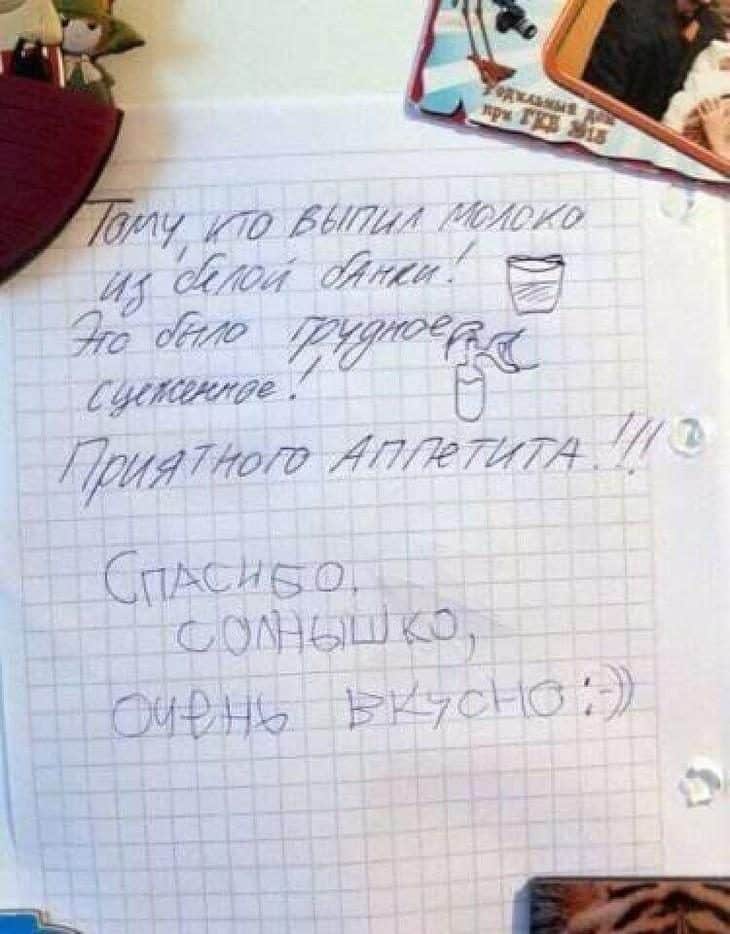 Родильный дом
при ГКБ №15
Тому, кто выпил молоко
из белой банки!
Это было грудное
сцеженное!
Приятного Аппетита!!!
Спасибо,
солнышко,
очень вкусно :-))